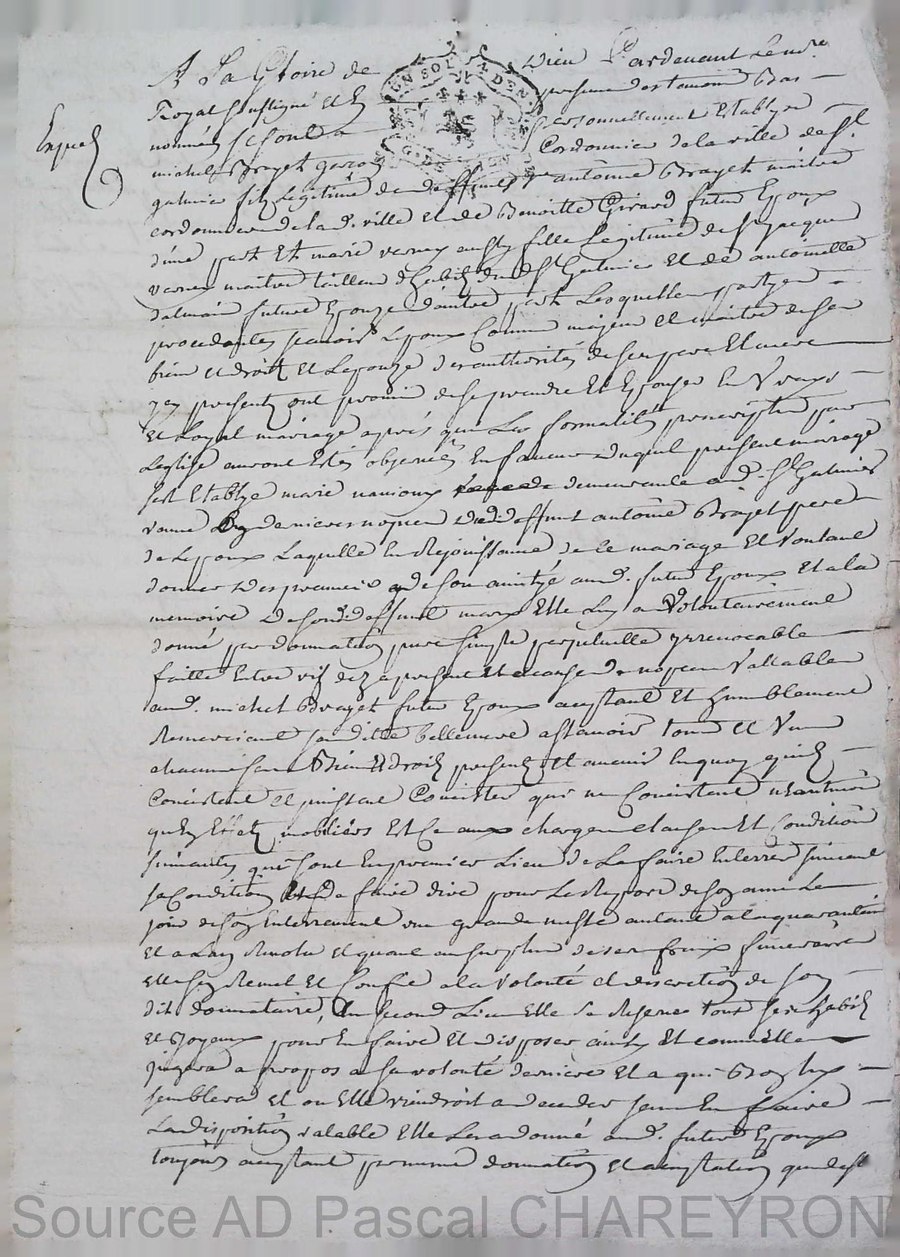 A La Gloire de Dieu Pardevant Le no.re
Royal soussigné et En presence des temoins Bas
nommés se sont Personnellement Etablys
Expediée
michel Brayet garçon Cordonnier de la ville de St
galmier fils Legitime de deffunt Sr antoine Brayet maitre
cordonnier de lad. ville et de Benoitte Girard futur Epoux
d'une part Et marie vernay aussy fille Legitime de Sr jacques
vernay maitre tailleur d'habits dud. St Galmier Et de antoinette
dalmais future Epouze d'autre part Lesquelles partyes
procedantes scavoir L'epoux Comme majeur et maitre de ses
biens et droits et L'epouze des authorités de ses pere Et mere
icy presents ont promis de se prendre Et Epouzer En Vrays
et Loyal mariage après que Les formalités prescriptes par
L'eglise auront Estés observées En faveur duquel present mariage
s'est Etablye marie nanioux demeurante aud. St Galmier
veuve En dernieres nopces dud. deffunt antoine Brayet pere
de L'epoux Laquelle En Rejouissance de ce mariage Et Voulant
donner des preuves de son amityé aud. futur Epoux Et a la
memoire de sond. deffunt mary Elle Luy a Volontairement
donné par donnation pure simple perpetuelle yrrevocable
faitte Entre vifs dez a present Et a cause de nopces Vallable
aud. michel Brayet futur Epoux acceptant Et humblement
Remerciant sa ditte bellemere assavoir tous et Vns
chacuns ses Biens Et droits presents Et avenir En quoy qu'ils
Consistent et puissent Consister qui ne Consistent neantmoins
qu'En Effets mobiliers Et Ce aux charges clauses Et Conditions
suivantes qui sont En premier Lieu de La faire Enterrer suivant
sa Condition Et de faire dire pour Le Repos de son ame Le
jour de son Enterrement une grande messe autant a la quarantaine
Et a L'an Revolu et quant au surplus de ses frais funeraires
Elle s'en Remet Et Confie a la Volonté et discretion de son
dit donnataire, En second Lieu Elle se Reserve tous ses habits
et Joyaux pour En faire Et disposer ainsy Et comme Elle
jugera a Propos a sa volonté derniere Et a qui Bon luy
semblera et ou Elle viendroit a deceder sans En faire
La disposition valable Elle Les a donné aud. futur Epoux
toujours acceptant par meme donnation Et acceptation que dessus
Source AD Pascal CHAREYRON